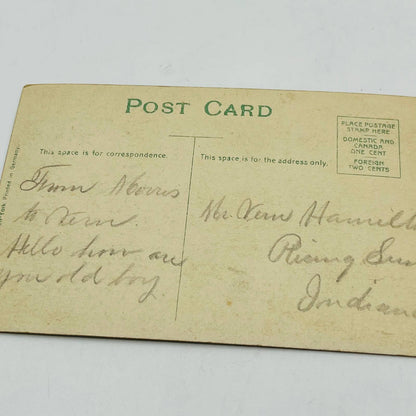 POST CARD
PLACE POSTAGE
STAMP HERE
DOMESTIC AND
CANADA
ONE CENT
FOREIGN
TWO CENTS
This space is for correspondence.
This space is for the address only.
From Morris
to Vern.
Hello how are
you old boy
Mr. Vern Hamilt
Rising Sun
Indiana
Printed in Germany.